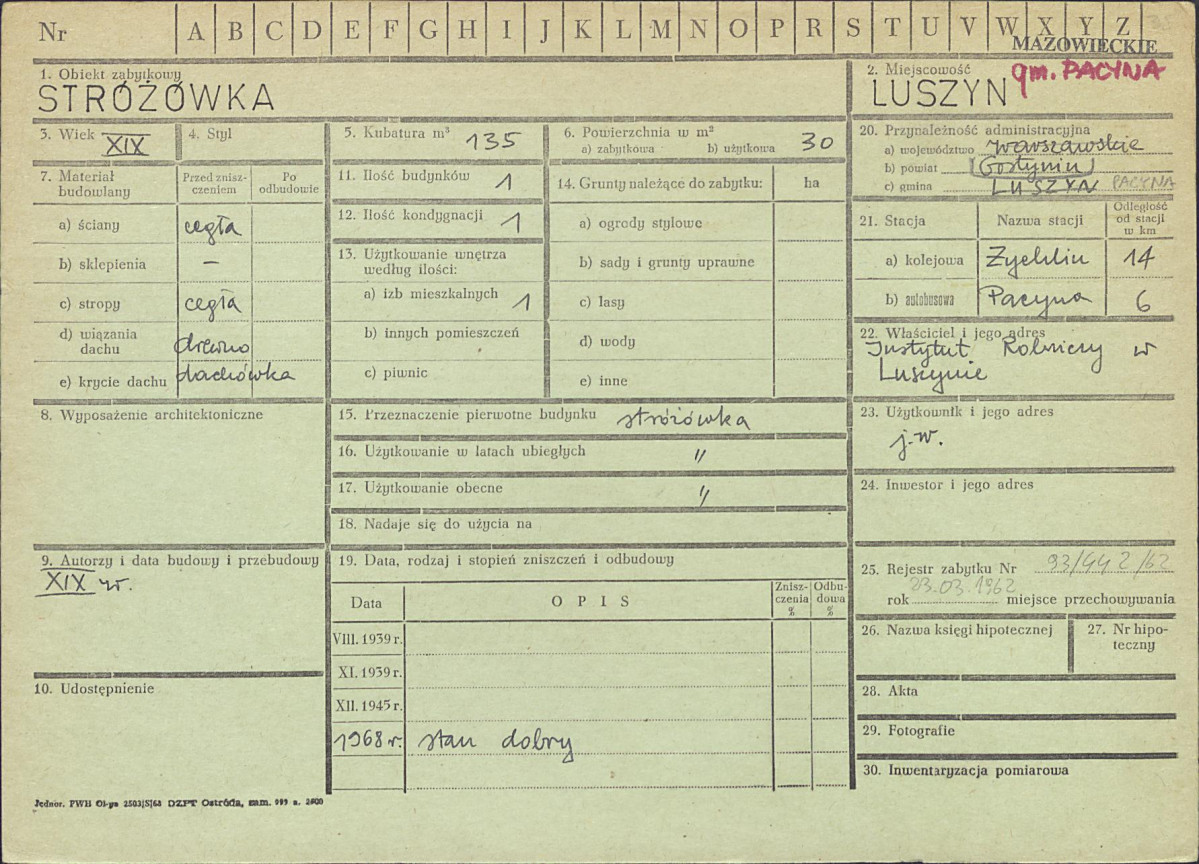 Nr A B C D E F G H I J K L M N O P R S T U V W X Y Z
MAZOWIECKIE
1. Obiekt zabytkowy
STRÓŻÓWKA
2. Miejscowość
LUSZYN gm. PACYNA
3. Wiek XIX
4. Styl
5. Kubatura m³ 135
6. Powierzchnia w m²
a) zabytkowa b) użytkowa 30
7. Materiał budowlany
Przed zniszczeniem
Po odbudowie
a) ściany cegła
b) sklepienia —
c) stropy cegła
d) wiązania dachu drewno
e) krycie dachu dachówka
8. Wyposażenie architektoniczne
9. Autorzy i data budowy i przebudowy
XIX w.
10. Udostępnienie
11. Ilość budynków 1
12. Ilość kondygnacji 1
13. Użytkowanie wnętrza
według ilości:
a) izb mieszkalnych 1
b) innych pomieszczeń
c) piwnic
14. Grunty należące do zabytku: ha
a) ogrody stylowe
b) sady i grunty uprawne
c) lasy
d) wody
e) inne
15. Przeznaczenie pierwotne budynku stróżówka
16. Użytkowanie w latach ubiegłych "
17. Użytkowanie obecne "
18. Nadaje się do użycia na
19. Data, rodzaj i stopień zniszczeń i odbudowy
Data OPIS Zniszczenia % Odbudowa %
VIII. 1939 r.
XI. 1939 r.
XII. 1945 r.
1968 r. stan dobry
20. Przynależność administracyjna
a) województwo warszawskie
b) powiat Gostynin
c) gmina LUSZYN PACYNA
21. Stacja Nazwa stacji Odległość od stacji w km
a) kolejowa Żychlin 14
b) autobusowa Pacyna 6
22. Właściciel i jego adres
Instytut Rolniczy w
Luszynie
23. Użytkownik i jego adres
j.w.
24. Inwestor i jego adres
25. Rejestr zabytku Nr 93/442/62
23.03.1962
rok miejsce przechowywania
26. Nazwa księgi hipotecznej
27. Nr hipoteczny
28. Akta
29. Fotografie
30. Inwentaryzacja pomiarowa